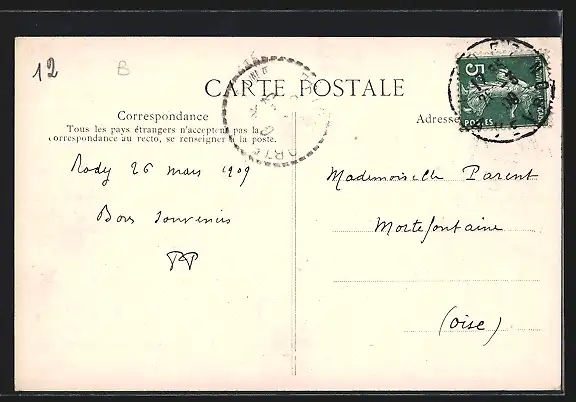 12
B
CARTE POSTALE
Correspondance
Tous les pays étrangers n'acceptent pas la
correspondance au recto, se renseigner à la poste.
Adresse
5
POSTES
Rody 26 mars 1909
Bons Souvenirs
PP
Mademoiselle Parent
Mortefontaine
(Oise)